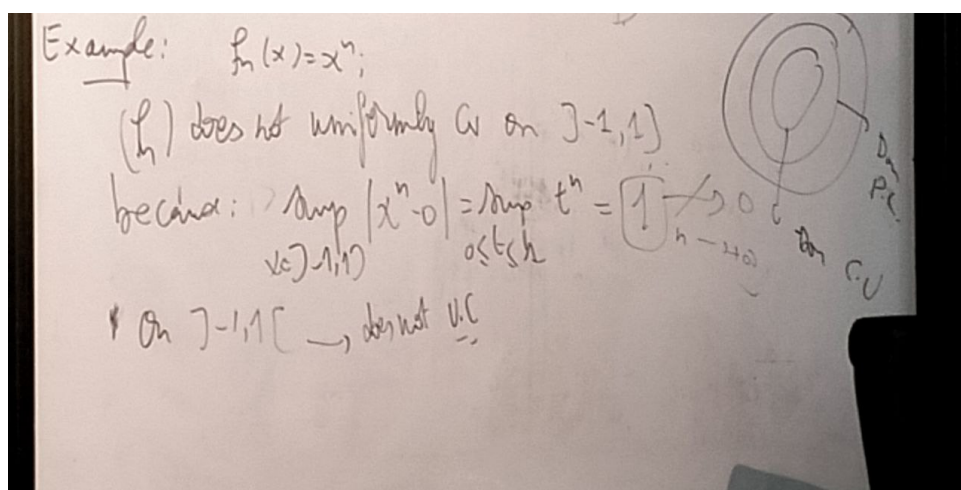 Example: fn(x)=xⁿ;
(fn) does not uniformly Cv on ]-1,1]
because: sup |xⁿ-0| = sup tⁿ = 1 ↛ 0
x∈]-1,1] 0≤t≤1 n→+∞
• On ]-1,1[ → does not U.C
Dom
P.C.
Dom C.U